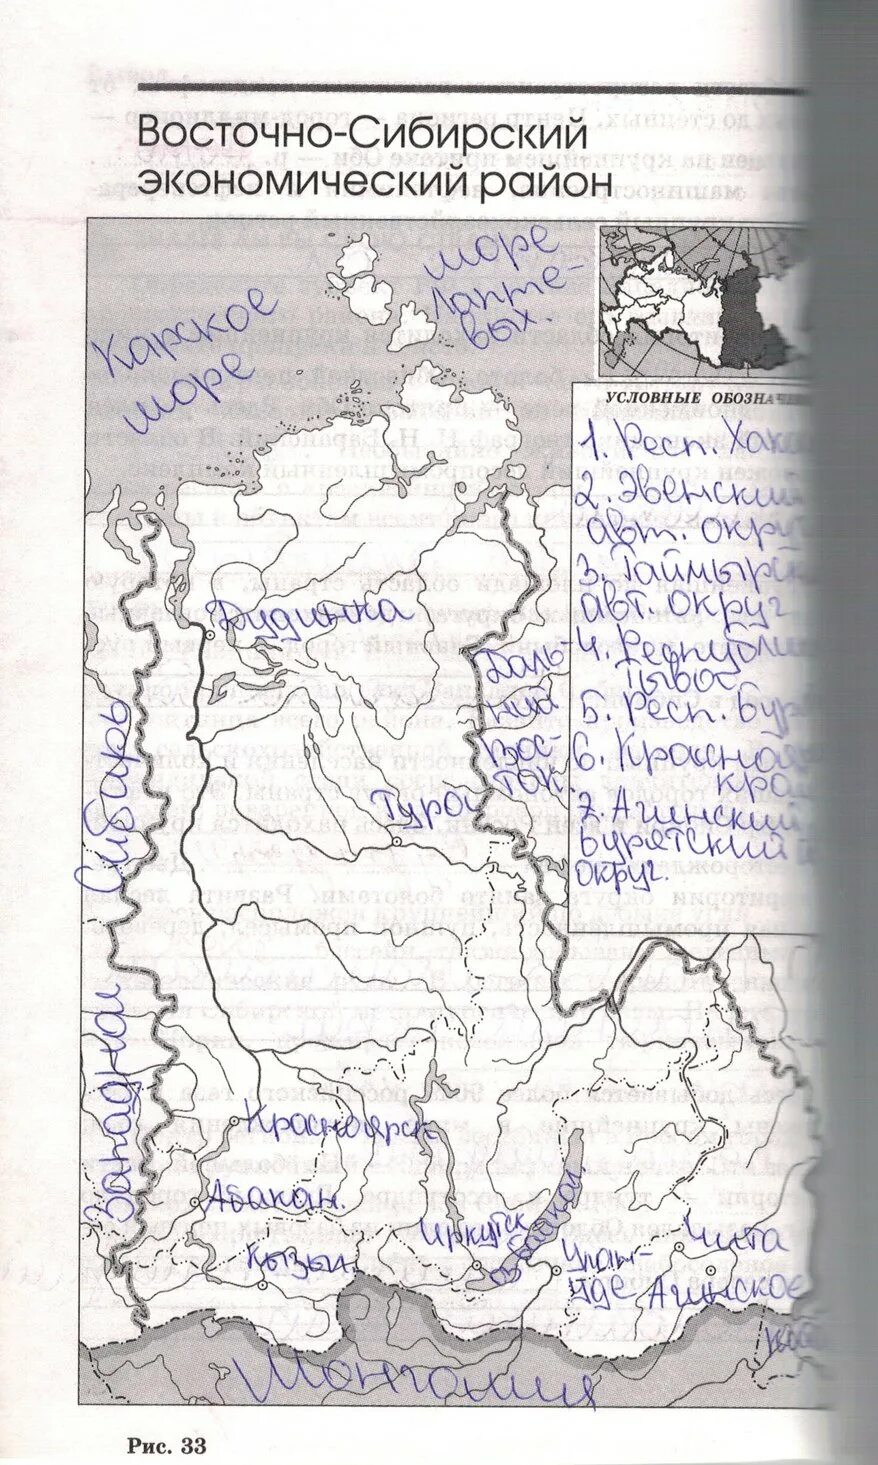 Восточно-Сибирский
экономический район
Карское
море
море
Лапте-
вых
УСЛОВНЫЕ ОБОЗНАЧЕН
1. Респ. Хак
2. Эвенский
авт. окру
3. Таймырс
авт. округ
4. Республи
Тыва
5. Респ. Бур
6. Красноя
край
7. Агинский
Бурятский
округ.
Дудинка
Даль-
ний
Вос-
ток
Тура
Западная Сибирь
Красноярск
Абакан.
Кызыл
Иркутск
оз. Байкал
Улан-
Удэ
Чита
Агинское
Монголия
Рис. 33